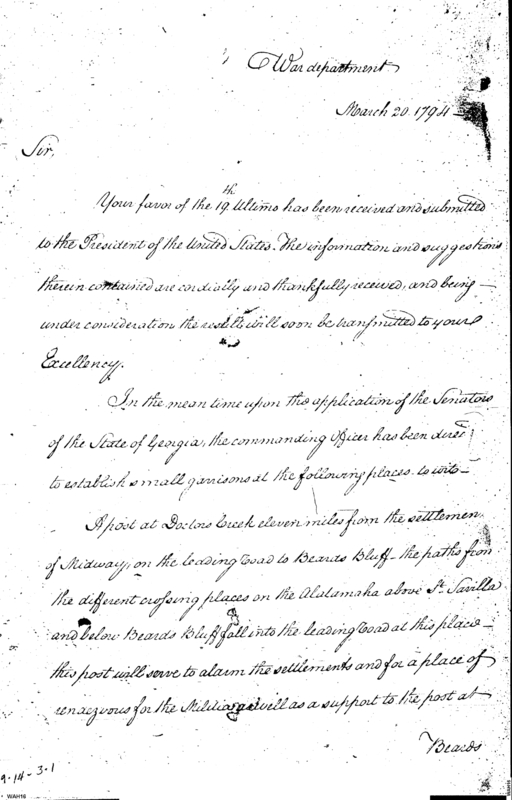 War department
March 20. 1794 –
Sir,
Your favor of the 19th Ultimo has been received and submitted
to the President of the United States. The information and suggestions
therein contained are cordially and thankfully received, and being –
under consideration the results will soon be transmitted to your
Excellency.
In the mean time upon the application of the Senators
of the State of Georgia, the commanding Officer has been direc
to establish small garrisons at the following places – to wit –
A post at Doctors Creek eleven miles from the settlemen
of Midway, on the leading road to Beards Bluff – the paths from
the different crossing places on the Alatamaha above St. Savilla
and below Beards Bluff fall into the leading road at this place –
this post will serve to alarm the settlements and for a place of
rendezvous for the Militia as well as a support to the post at
Beards
9-14-3-1
WAH16
WAH16